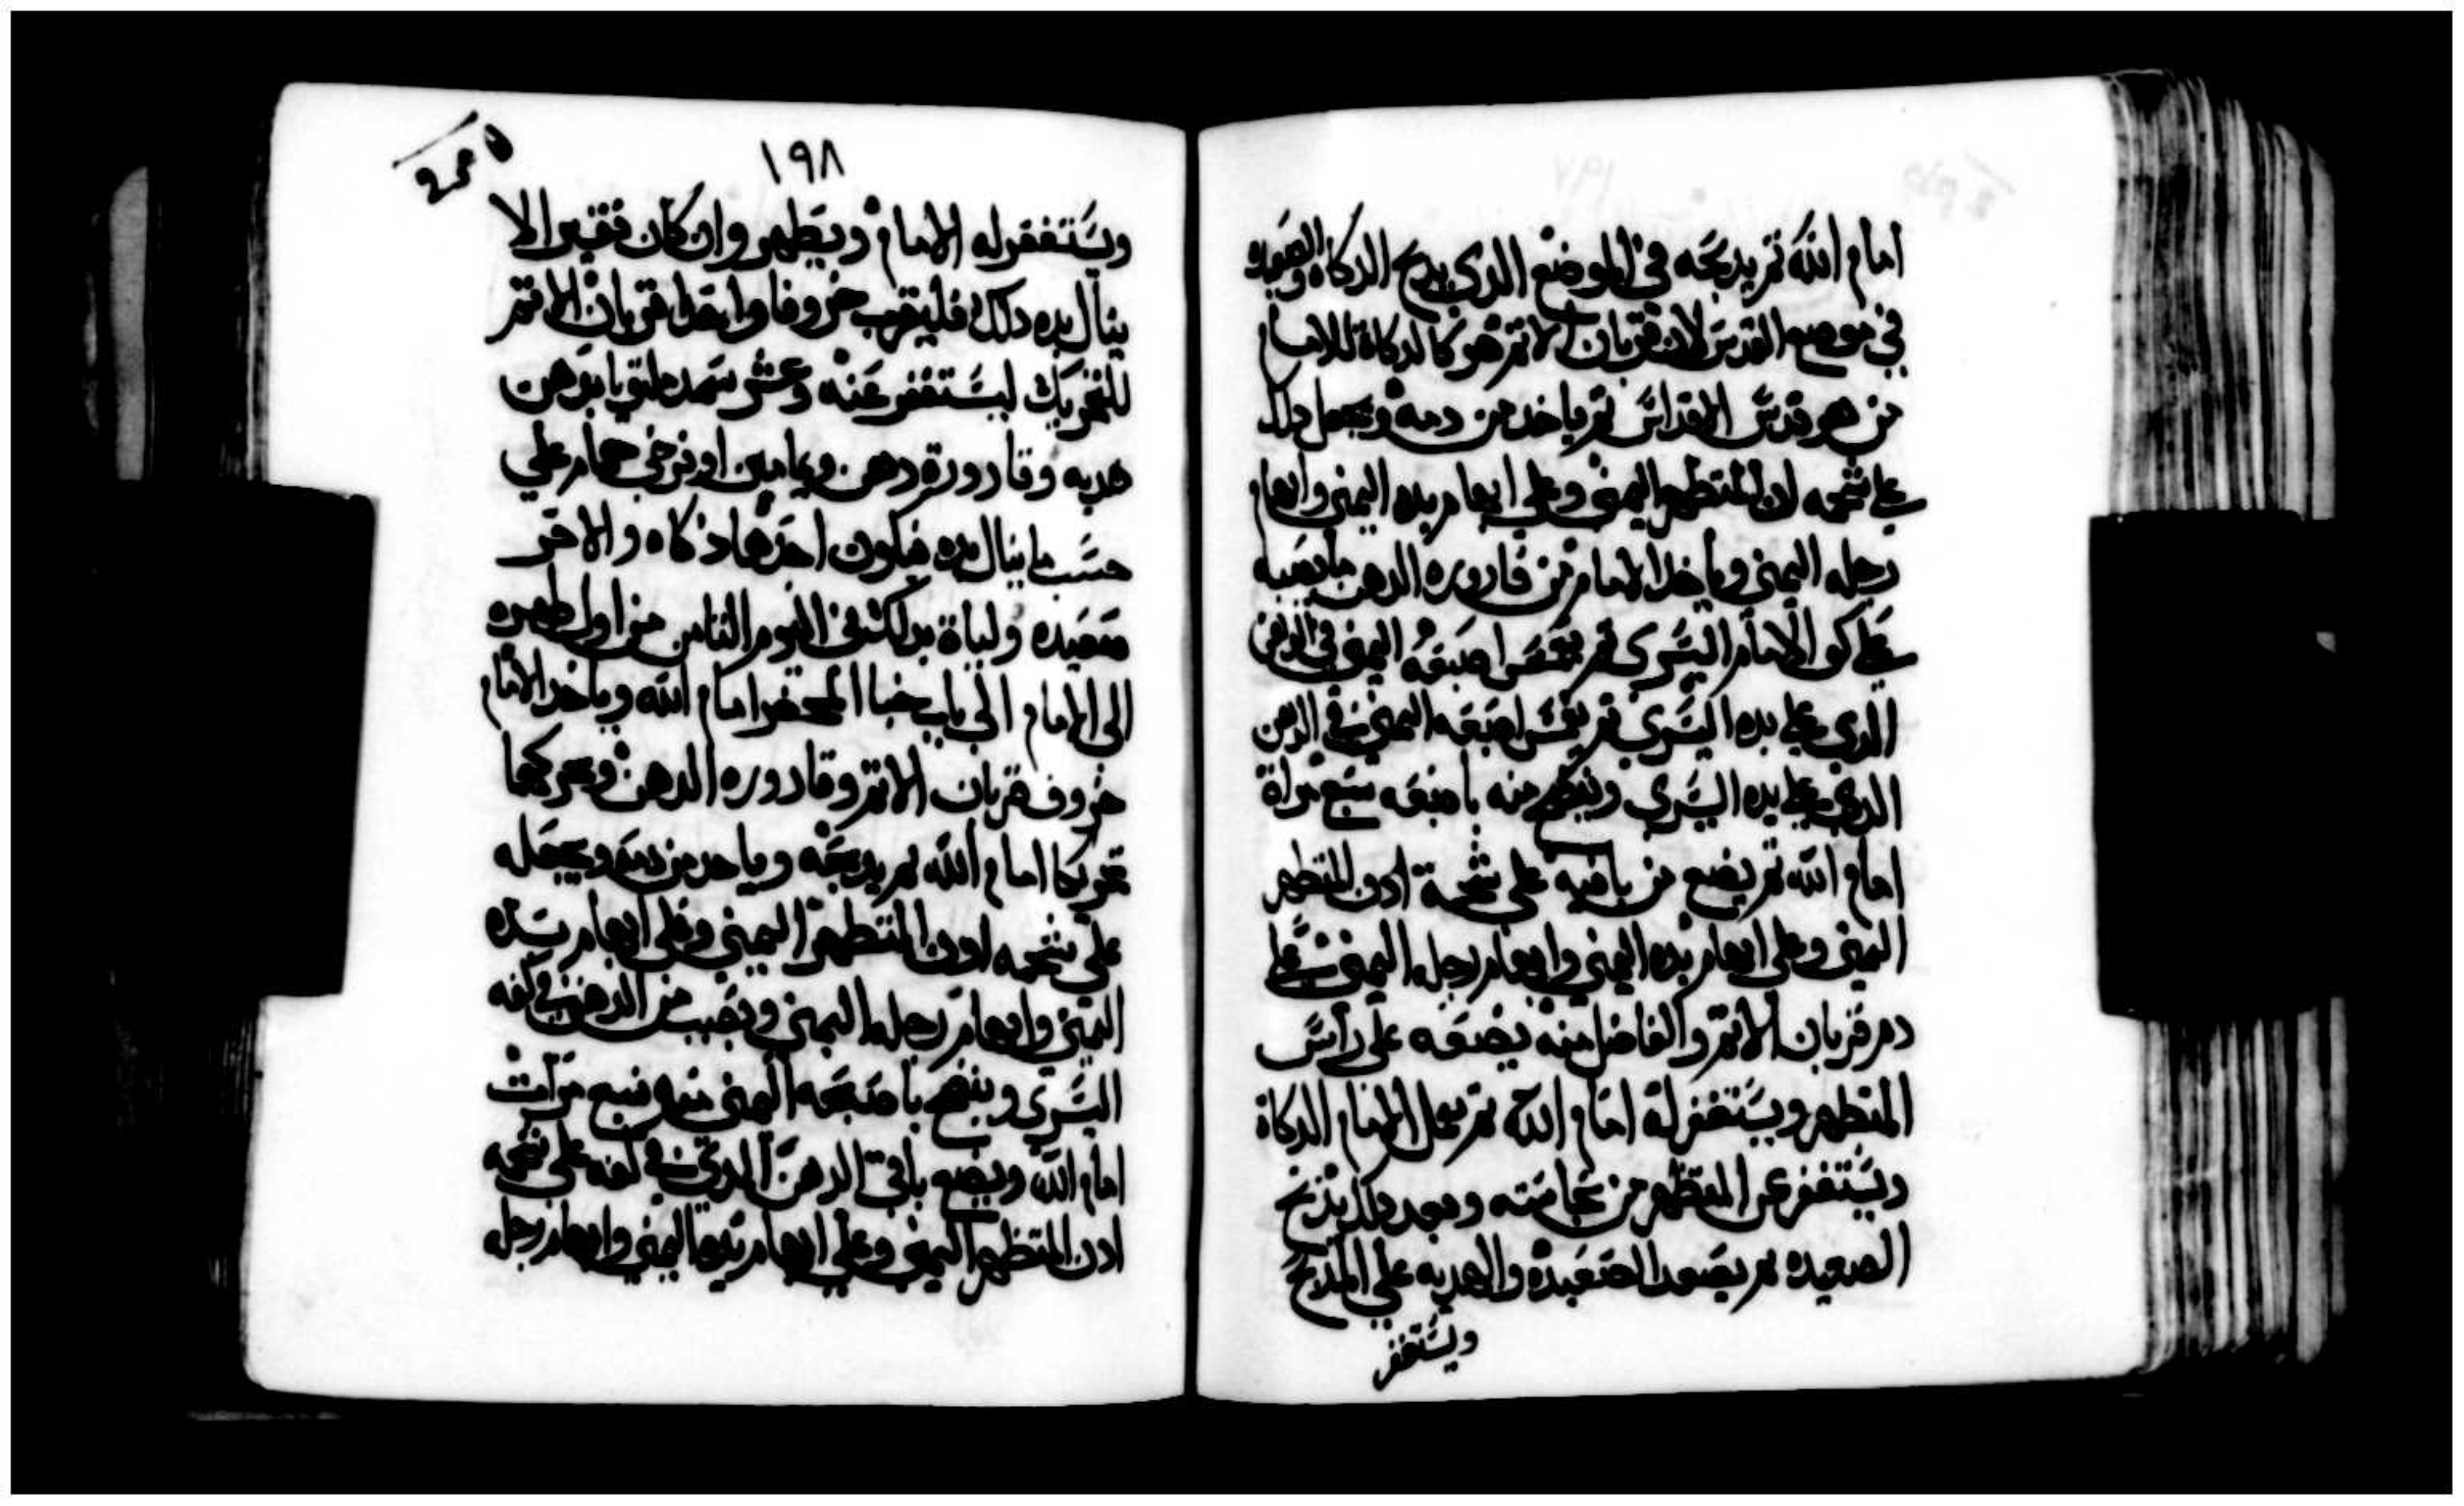 امام الله تم يدبحه في الموضع الدي يدبح الدكاة والصعيده
في موضع القدس لان قربان الاتم هو كالدكاة للامام
من هو قدس الاقداس تم ياخد من دمه ويجعل دلك
على شحمه ادن المتطهر اليمنى وعلى ابهام يده اليمنى وابهام
رجله اليمنى وياخد الامام من قاروره الدهن ما يصبه
على كو الامام اليسرى تم يغمس اصبعه اليمنى في الدهن
الدي على يده اليسرى تم يغمس اصبعه اليمنى في الدهن
الدي على يده اليسرى وينضح منه باصبعه سبع مراة
امام الله تم يضع من باقيه على شحمة ادن المتطهر
اليمنى وعلى ابهام يده اليمنى وابهام رجله اليمنى على
دم قربان الاتم والفاضل منه يضعه على رأس
المتطهر ويستغفر له امام الله تم يعمل الامام الدكاة
ويستغفر عن المتطهر من نجاسته وبعد دلك يدبح
الصعيده تم يصعد الصعيدة والهديه على المدبح
ويستغفر
١٩٨
ويستغفر له الامام ويتطهر وان كان فقير الا
ينال يده دلك فليقرب خروفا واحدا قربان الاتم
للتحريك ليستغفر عنه وعشر سمد ملتوتا بدهن
هديه وقارورة دهن ويمامين او فرخي حمام على
حسب ما ينال يده فيكون احدها دكاه والاخر
صعيده ولياة بدلك في اليوم التامن من اول طهره
الى الامام الى باب خبا المحضر امام الله وياخد الامام
خروف قربان الاتم وقاروره الدهن ويحركهما
تحريكا امام الله تم يدبحه وياخد من دمه ويجعله
على شحمه ادن المتطهر اليمنى وعلى ابهام يده
اليمنى وابهام رجله اليمنى ويصب من الدهن في كفه
اليسرى وينضح باصبعه اليمنى منه سبع مرات
امام الله ويضع باقي الدهن الدي في كفه على شحمه
ادن المتطهر اليمنى وعلى ابهام يده اليمنى وابهام رجل